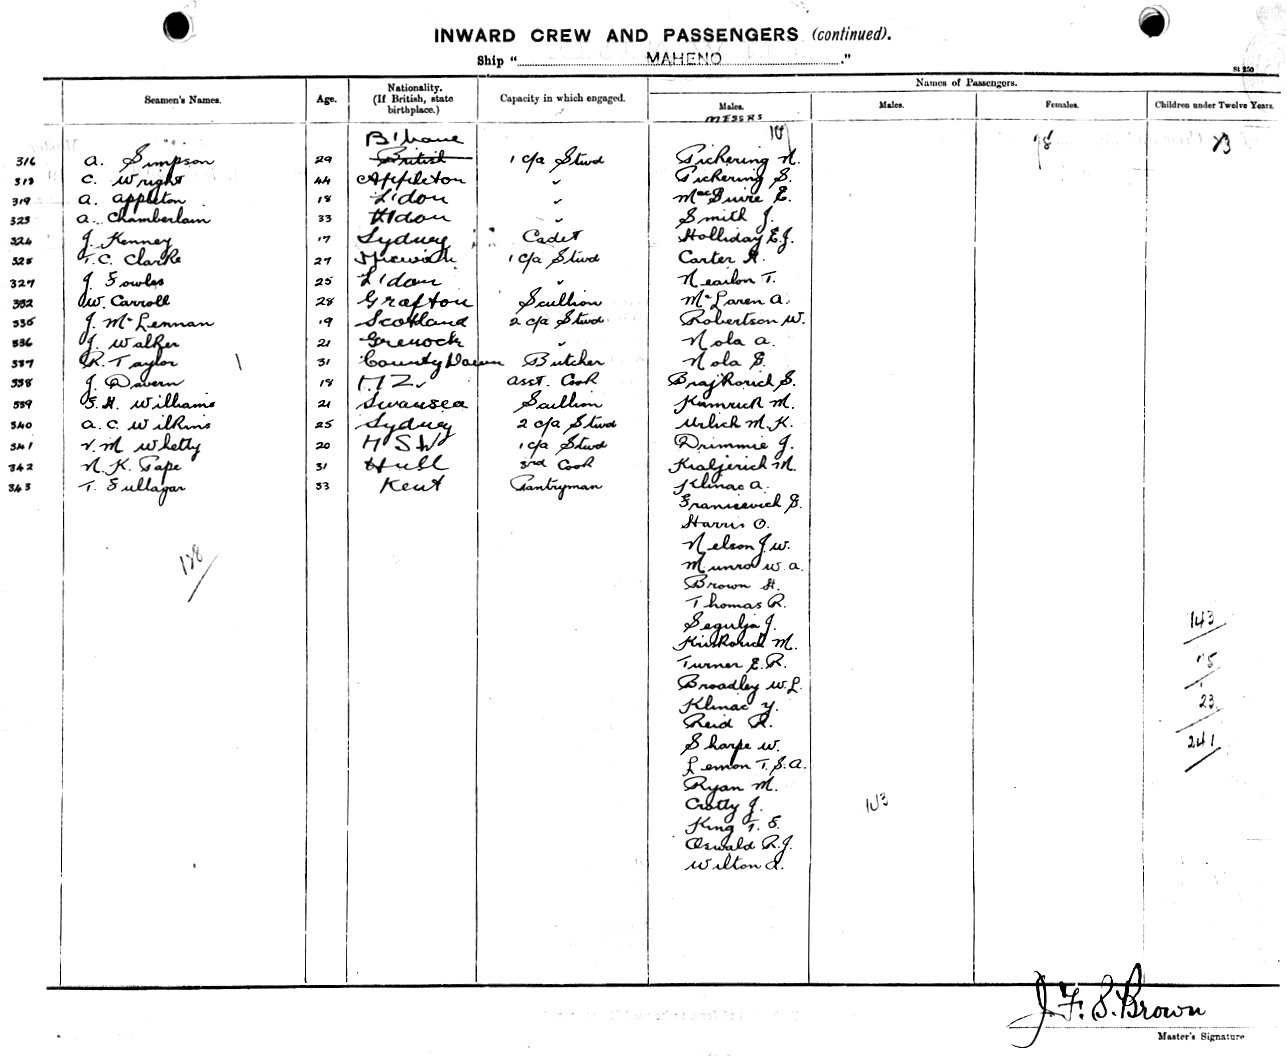 INWARD CREW AND PASSENGERS (continued).
Ship " MAHENO ."
Seamen's Names. Age. Nationality. (If British, state birthplace.) Capacity in which engaged. Names of Passengers.
Males. Males. Females. Children under Twelve Years.
MESSRS
B'bane 78 23
316 A. Simpson 29 British 1 c/a Stwd Pickering N.
318 C. Wright 44 Appleton " Pickering S.
319 A. Appleton 18 L'don " MacGuire E.
323 A. Chamberlain 33 H'don " Smith J.
324 J. Kenney 17 Sydney Cadet Holliday E.J.
325 T.C. Clarke 27 1 c/a Stwd Carter A.
327 J. Fowles 25 L'don " Nearlon T.
332 W. Carroll 28 Grafton Scullion McLaren A.
335 J. McLennan 19 Scotland 2 c/a Stwd Robertson W.
336 J. Walker 21 Greenock " Nola A.
337 R. Taylor 31 County Down Butcher Nola S.
338 J. Davern 18 N.Z. Asst. Cook Brajkovich S.
339 S.H. Williams 21 Swansea Scullion Kumrich M.
340 A.C. Wilkins 25 Sydney 2 c/a Stwd Urlich M.K.
341 V.M. Whetty 20 N S W 1 c/a Stwd Drimmie J.
342 N.K. Pape 31 Hull 3rd Cook Kraljevich M.
343 T. Fullagar 53 Kent Pantryman Klinac A.
Franicevich S.
Harris O.
Nelson J.W.
Munro W.A.
Brown H.
Thomas R.
Segulja J.
143
Kuskovich M.
Turner E.R.
75
Broadley W.L.
Klinac Y.
23
Reid R.
Sharpe W.
241
Lemon T.S.A.
Ryan M.
Crotty J.
143
King T.S.
Oswald R.J.
Wilton A.
188
J.F.S. Brown
Master's Signature